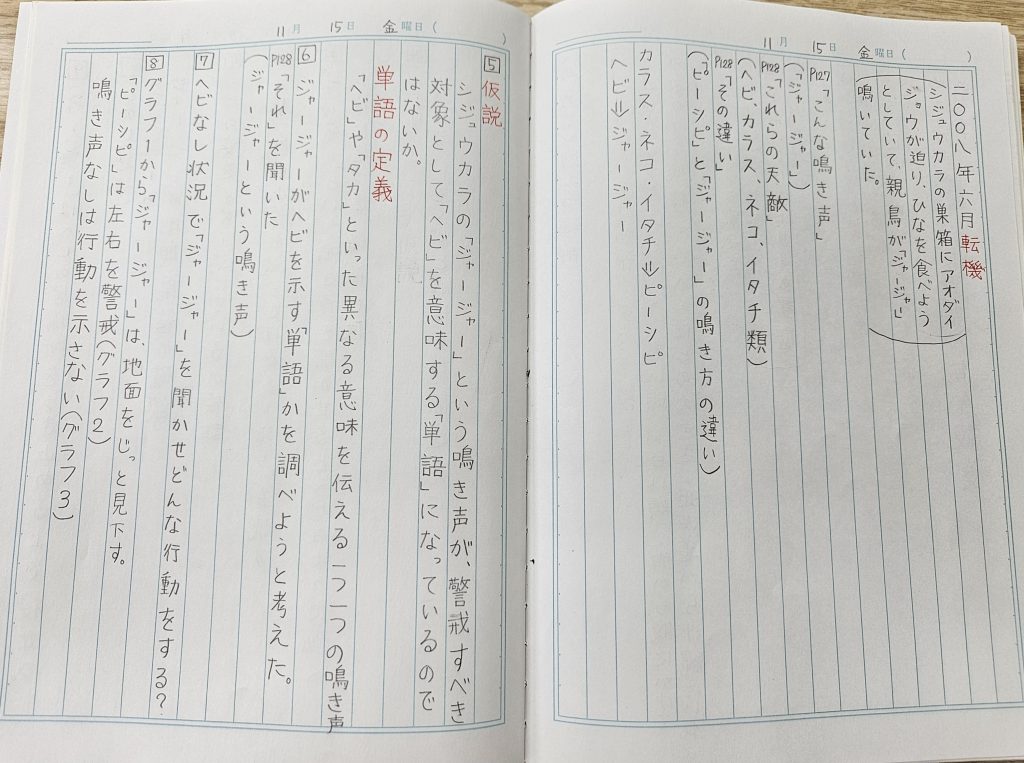 11月 15日 金曜日( )
二〇〇八年六月転機
(シジュウカラの巣箱にアオダイ
ジョウが迫り、ひなを食べよう
としていて、親鳥が「ジャージャー」
鳴いていた。)
P127「こんな鳴き声」
(「ジャージャー」)
P128「これらの天敵」
(ヘビ、カラス、ネコ、イタチ類)
P128「その違い」
(「ピーシピ」と「ジャージャー」の鳴き方の違い)
カラス・ネコ・イタチ⇒ピーシピ
ヘビ⇒ジャージャー
11月 15日 金曜日( )
5 仮説
シジュウカラの「ジャージャー」という鳴き声が、警戒すべき
対象として「ヘビ」を意味する「単語」になっているので
はないか。
単語の定義
「ヘビ」や「タカ」といった異なる意味を伝える一つ一つの鳴き声
6 ジャージャーがヘビを示す「単語」かを調べようと考えた。
P128「それ」を聞いた
(ジャージャーという鳴き声)
7 ヘビなし状況で「ジャージャー」を聞かせどんな行動をする?
8 グラフ1から「ジャージャー」は、地面をじっと見下す。
「ピーシピ」は左右を警戒(グラフ2)
鳴き声なしは行動を示さない(グラフ3)